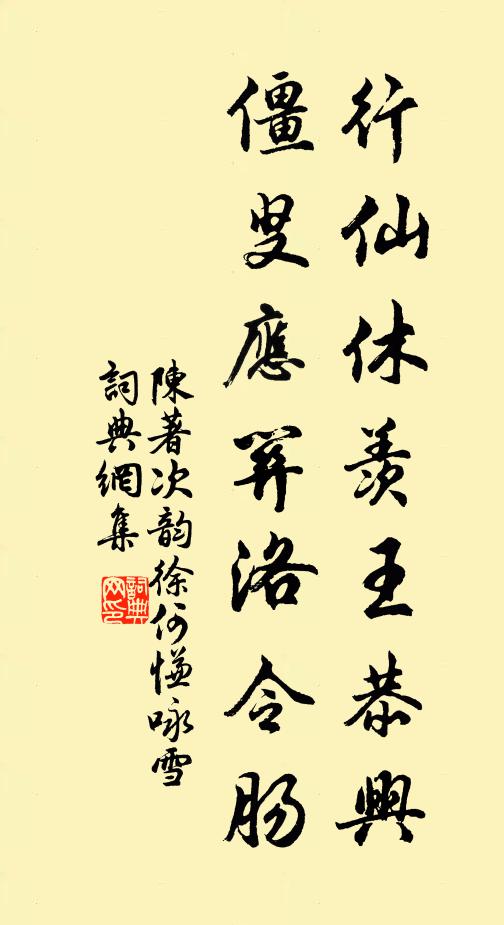 行仙休羨王恭興
僵叟應開洛令腸
陳著次韵徐何咏雪
詞典網集
詞典
网印